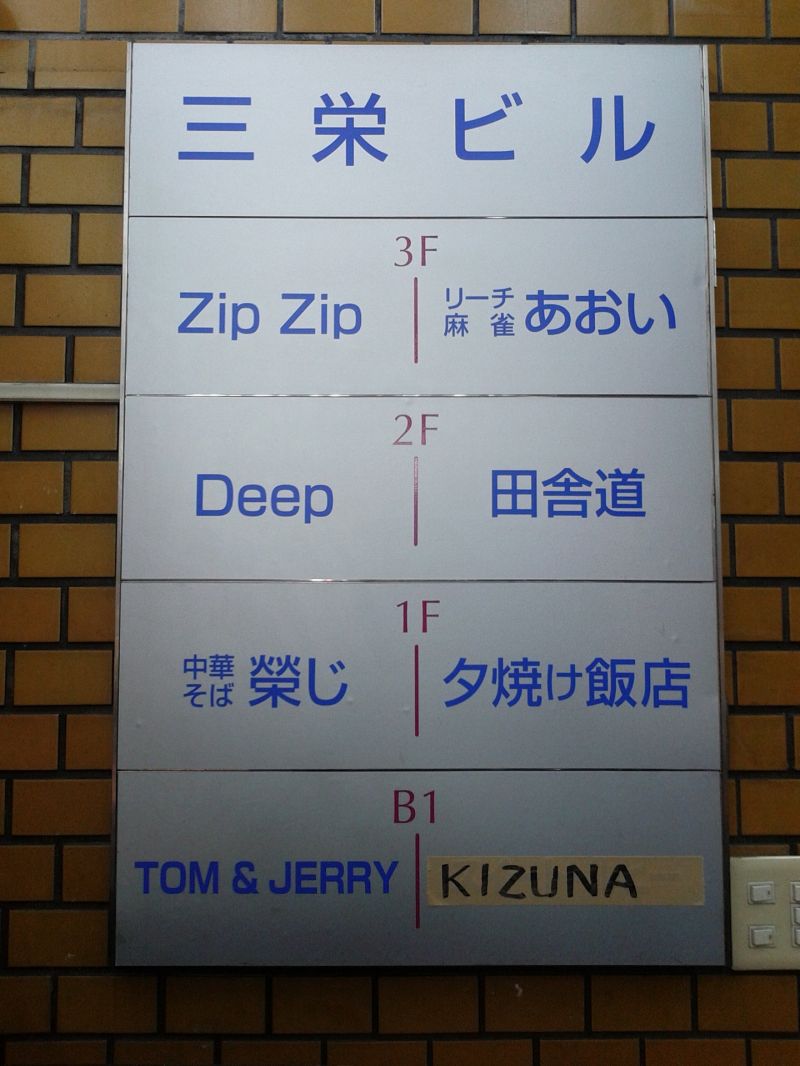 三栄ビル
3F
Zip Zip
リーチ
麻雀
あおい
2F
Deep
田舎道
1F
中華
そば
榮じ
夕焼け飯店
B1
TOM & JERRY
KIZUNA